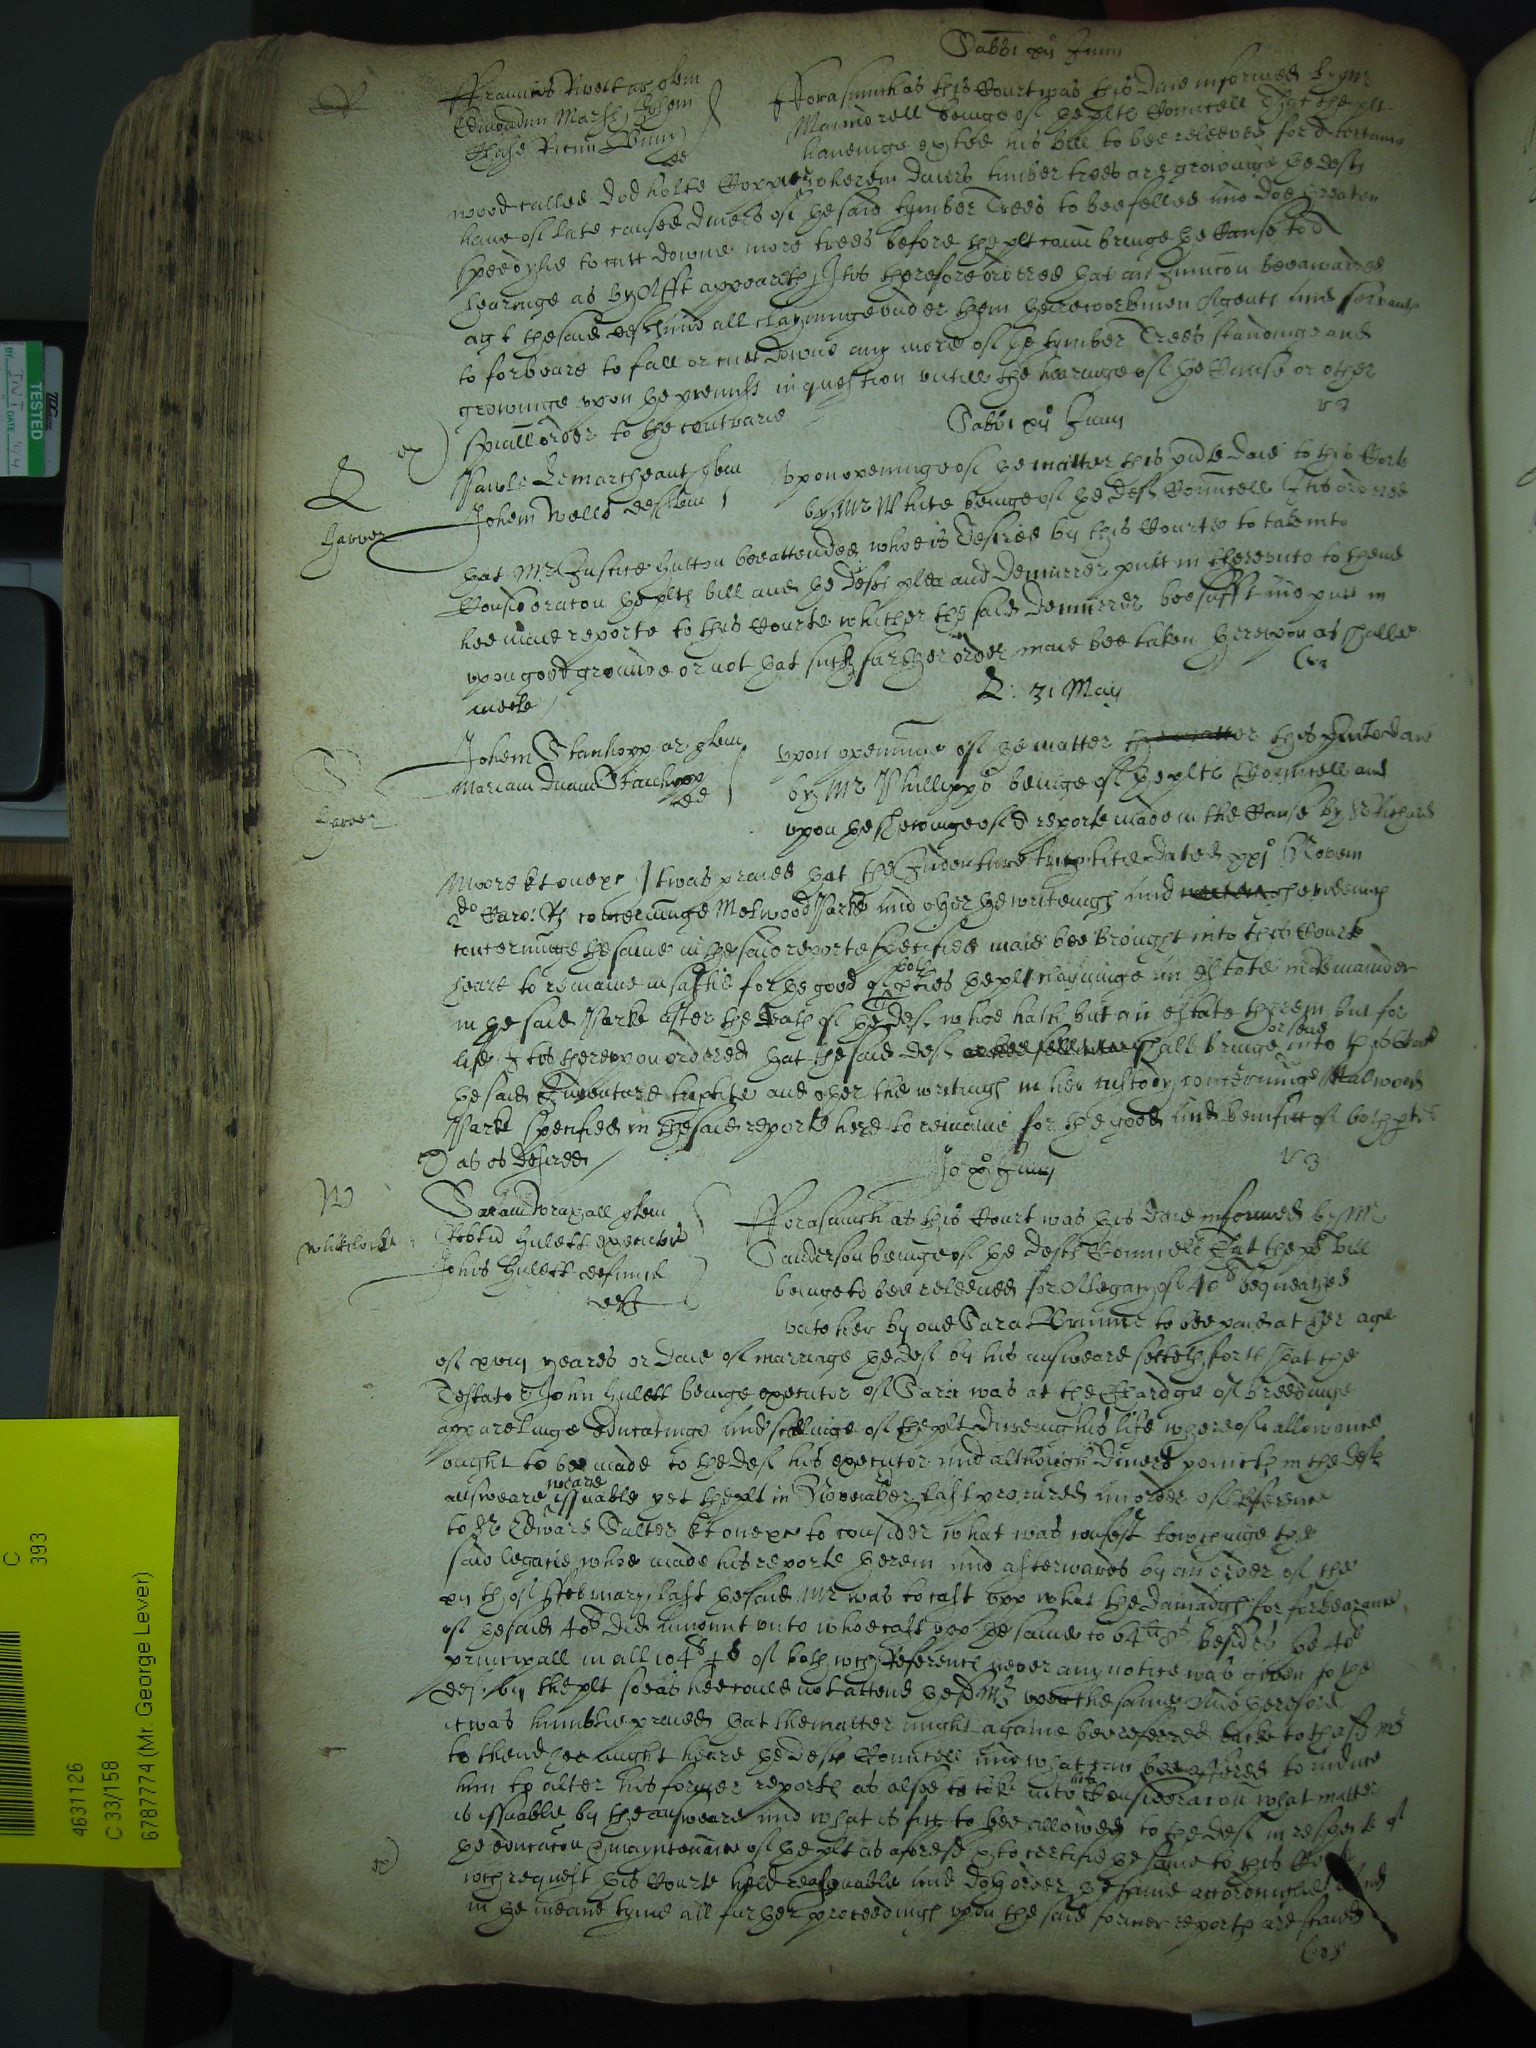 Sabbi xii Junii
Edmondum Marsh Johem
Forasmuch as this Court was this daie informed by Mr
beinge of the plts Councell That the plt
haueinge exhited his bill to bee releeued for a certaine
wood called wherein diuers timber trees are groweinge the defts
haue of late caused diuers of the said tymber Trees to bee felled and doe threaten
speedylie to cutt downe more trees before the plt cann bringe the Cause to a
hearinge as by Afft appeareth It is therefore ordered that an Iniuncon bee awarded
agt the said defts and all clayminge vnder them their workmen Agents and seruants
to forbeare to fall or cutt downe any more of the tymber Trees standinge and
growinge vpon the premiss in question vntill the hearinge of the Cause or other
speciall order to the contrarie
Sabbi xii Junii
ex)
Johem Wells deftem
vpon openinge of the matter this pnte daie to this Corte
by Mr White beinge of the defts Councell It is ordered
that Mr Justice Hutton bee attended whoe is desired by this Courte to take into
Consideracon the plts bill and the defts plea and demurrer putt in therevnto to thend
hee maie reporte to this Courte whither the said demurrer bee suffit and putt in
vpon good grounde or not that such further order maie bee taken therevpon as shalbe
meete
31 Maij
Johem Stanhopp ar quem
Mariam Stanhopp
vpon openinge of the matter this pnte daie
by Mr Phillipps beinge of the plts Councell and
vpon the shewinge of a reporte made in the Cause by Sr Richard
Moore kt one &c It was praied that the Indenture tripartite dated xxi Novem
concerninge Melwood Parke and other the writeings and evidences
concerninge the same in the said reporte specified maie bee brought into this Courte
heare to remaine in saftie for the good of both pties the plt clayminge an estate in Remainder
in the said Parke after the death of the deft whoe hath but an estate therein but for
life It is therevpon ordered that the said deft shall bringe or send into this Court
the said Indenture tripartite and other the writings in her custody concerninge Melwood
Parke specified in the said reporte here to remaine for the good and benifitt of both pties
as is desired
Jo xi Junii
W
whitlocke
Saram quem
Johis Hulett defunct
deft
Forasmuch as this Court was this daie informed by Mr
Sanderson beinge of the defts Councell That the plts bill
beinge to bee releeued for a Legacy of 40l bequeathed
vnto her by one Sara to bee paid at her age
of xviij yeares or daie of marriage the deft by his answeare setteth forth that the
Testator John Hulett beinge executor of Sara was at the Chardge of breedinge
apparelinge educatinge and of the plt dureing his life whereof allowance
ought to bee made to the deft his executor and although diuers points in the defts
answeare weare issuable yet the plt in November last procured an order of Reference
to Sr Edward Salter kt one &c to consider what was confest towchinge the
said legacie whoe made his reporte therein and afterwards by an order of the
xijth of Februarye last the said Mr was to cast vpp what the damadge for forbearance
of the said 40l did amount vnto who cast vpp the same to 64l 8s besides the 40l
principall in all 104l of both wch References never any notice was given to the
deft by the plt soe as hee could not attend the sd Mr vpon the same And therefore
it was humblie praied that the matter might againe bee referred backe to the sd Mr
to thend hee might heare the defts Councell and what can bee offered to induce
him to alter his former reports as alsoe to take into his Consideracon what matter
is issuable by the answeare and what is fitt to bee allowed to the deft in respecte of
the educacon & mayntenance of the plt as aforesd & to certifie the same to this Courte
wch request this Courte held reasonable and doth order the same accordinglie And
in the meane tyme all further proceedings vpon the said former reports are staied
TESTED
BY
DATE
C
393
4631126
C 33/158
6787774 (Mr. George Lever)